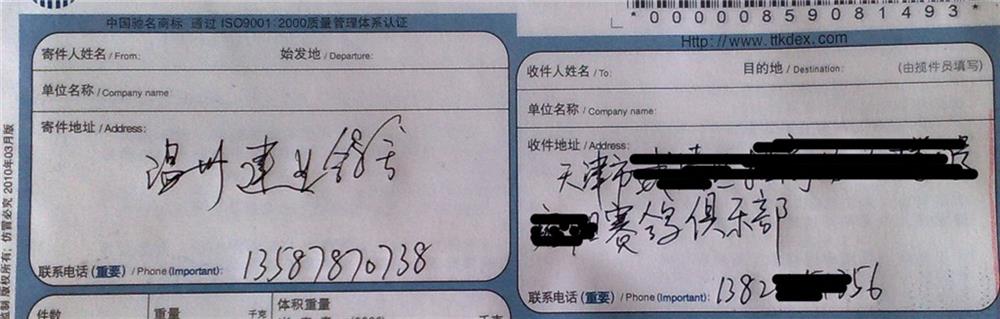 中国驰名商标 通过 ISO9001:2000质量管理体系认证
*0000859081493*
Http://www.ttkdex.com
寄件人姓名 / From: 始发地 / Departure:
单位名称 / Company name:
寄件地址 / Address:
温州建业鸽舍
联系电话 (重要) / Phone (Important): 13587870738
件数 重量 千克 体积重量 千克
收件人姓名 / To: 目的地 / Destination: (由揽件员填写)
单位名称 / Company name:
收件地址 / Address:
天津市
赛鸽俱乐部
联系电话 (重要) / Phone (Important): 1382 356
监制 版权所有; 仿冒必究 2010年03月版